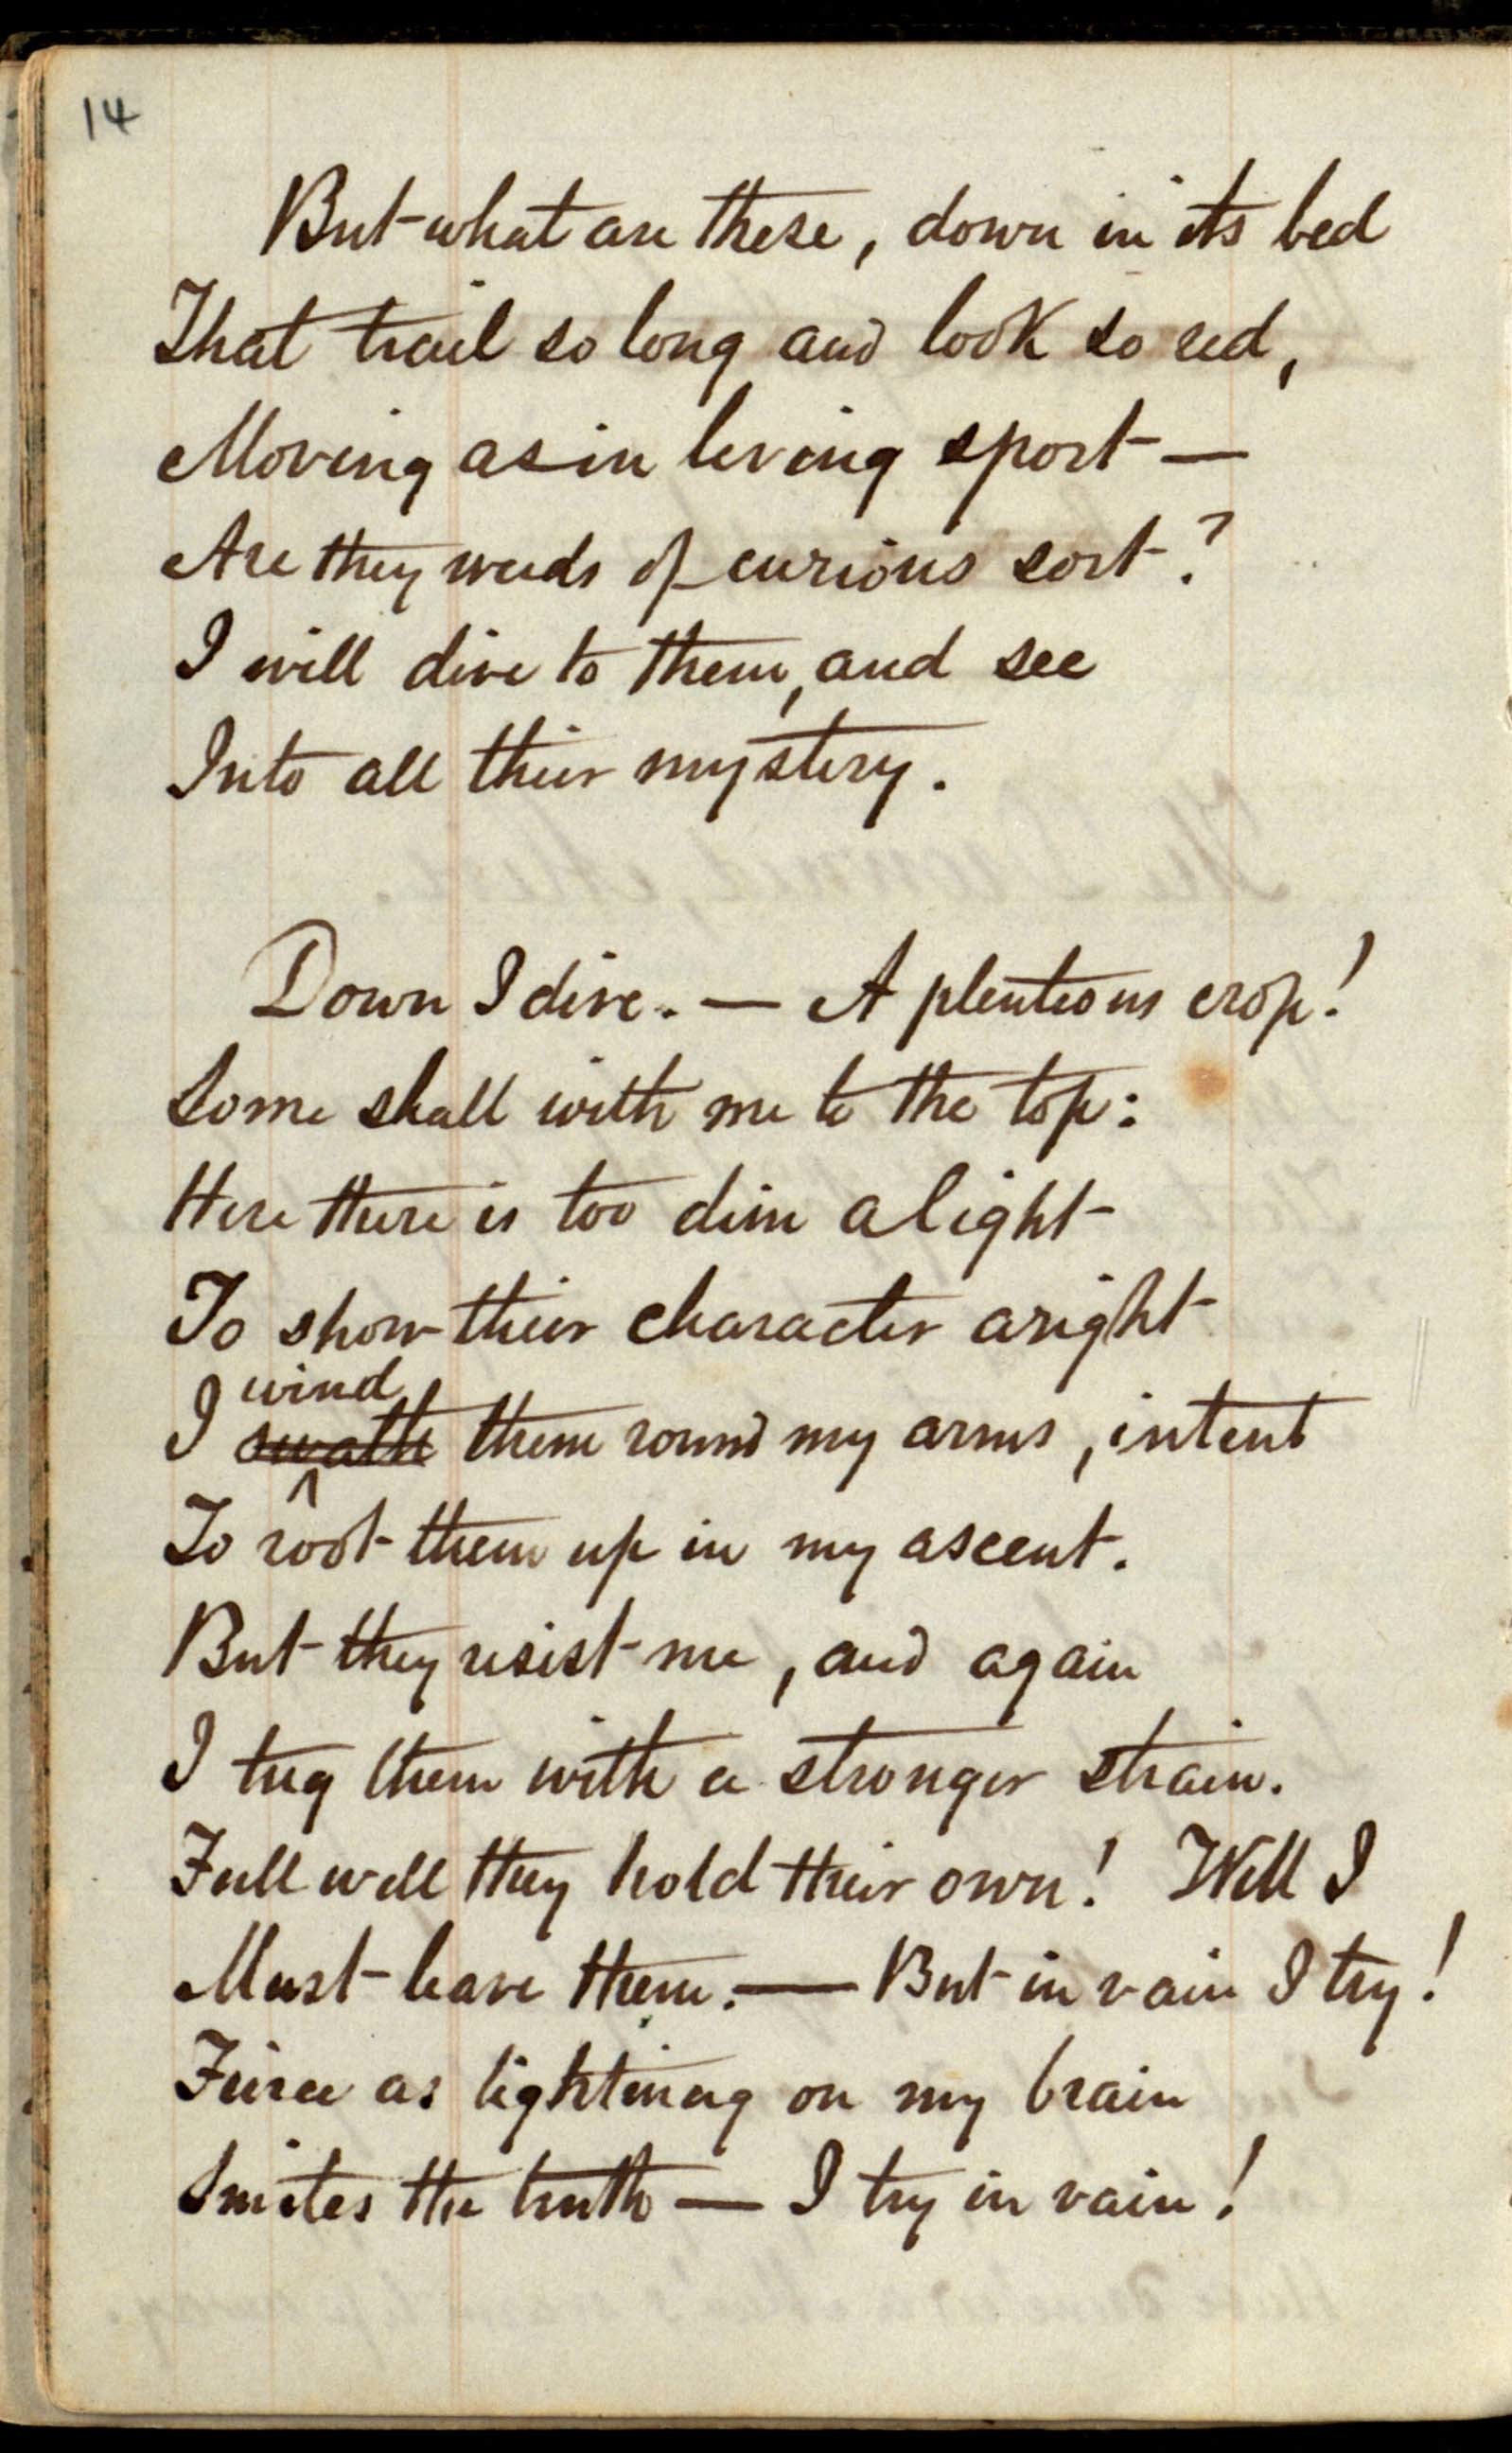 14
But what are these, down in its bed
That trail so long and look so red,
Moving as in living sport —
Are they weeds of curious sort?
I will dive to them, and see
Into all their mystery.
Down I dive. — A plenteous crop!
Some shall with me to the top:
Here there is too dim a light
To show their character aright
wind
I swath them round my arms, intent
To root them up in my ascent.
But they resist me, and again
I tug them with a stronger strain.
Full well they hold their own! Well I
Must leave them. — But in vain I try!
Fierce as lightning on my brain
Smites the truth — I try in vain!